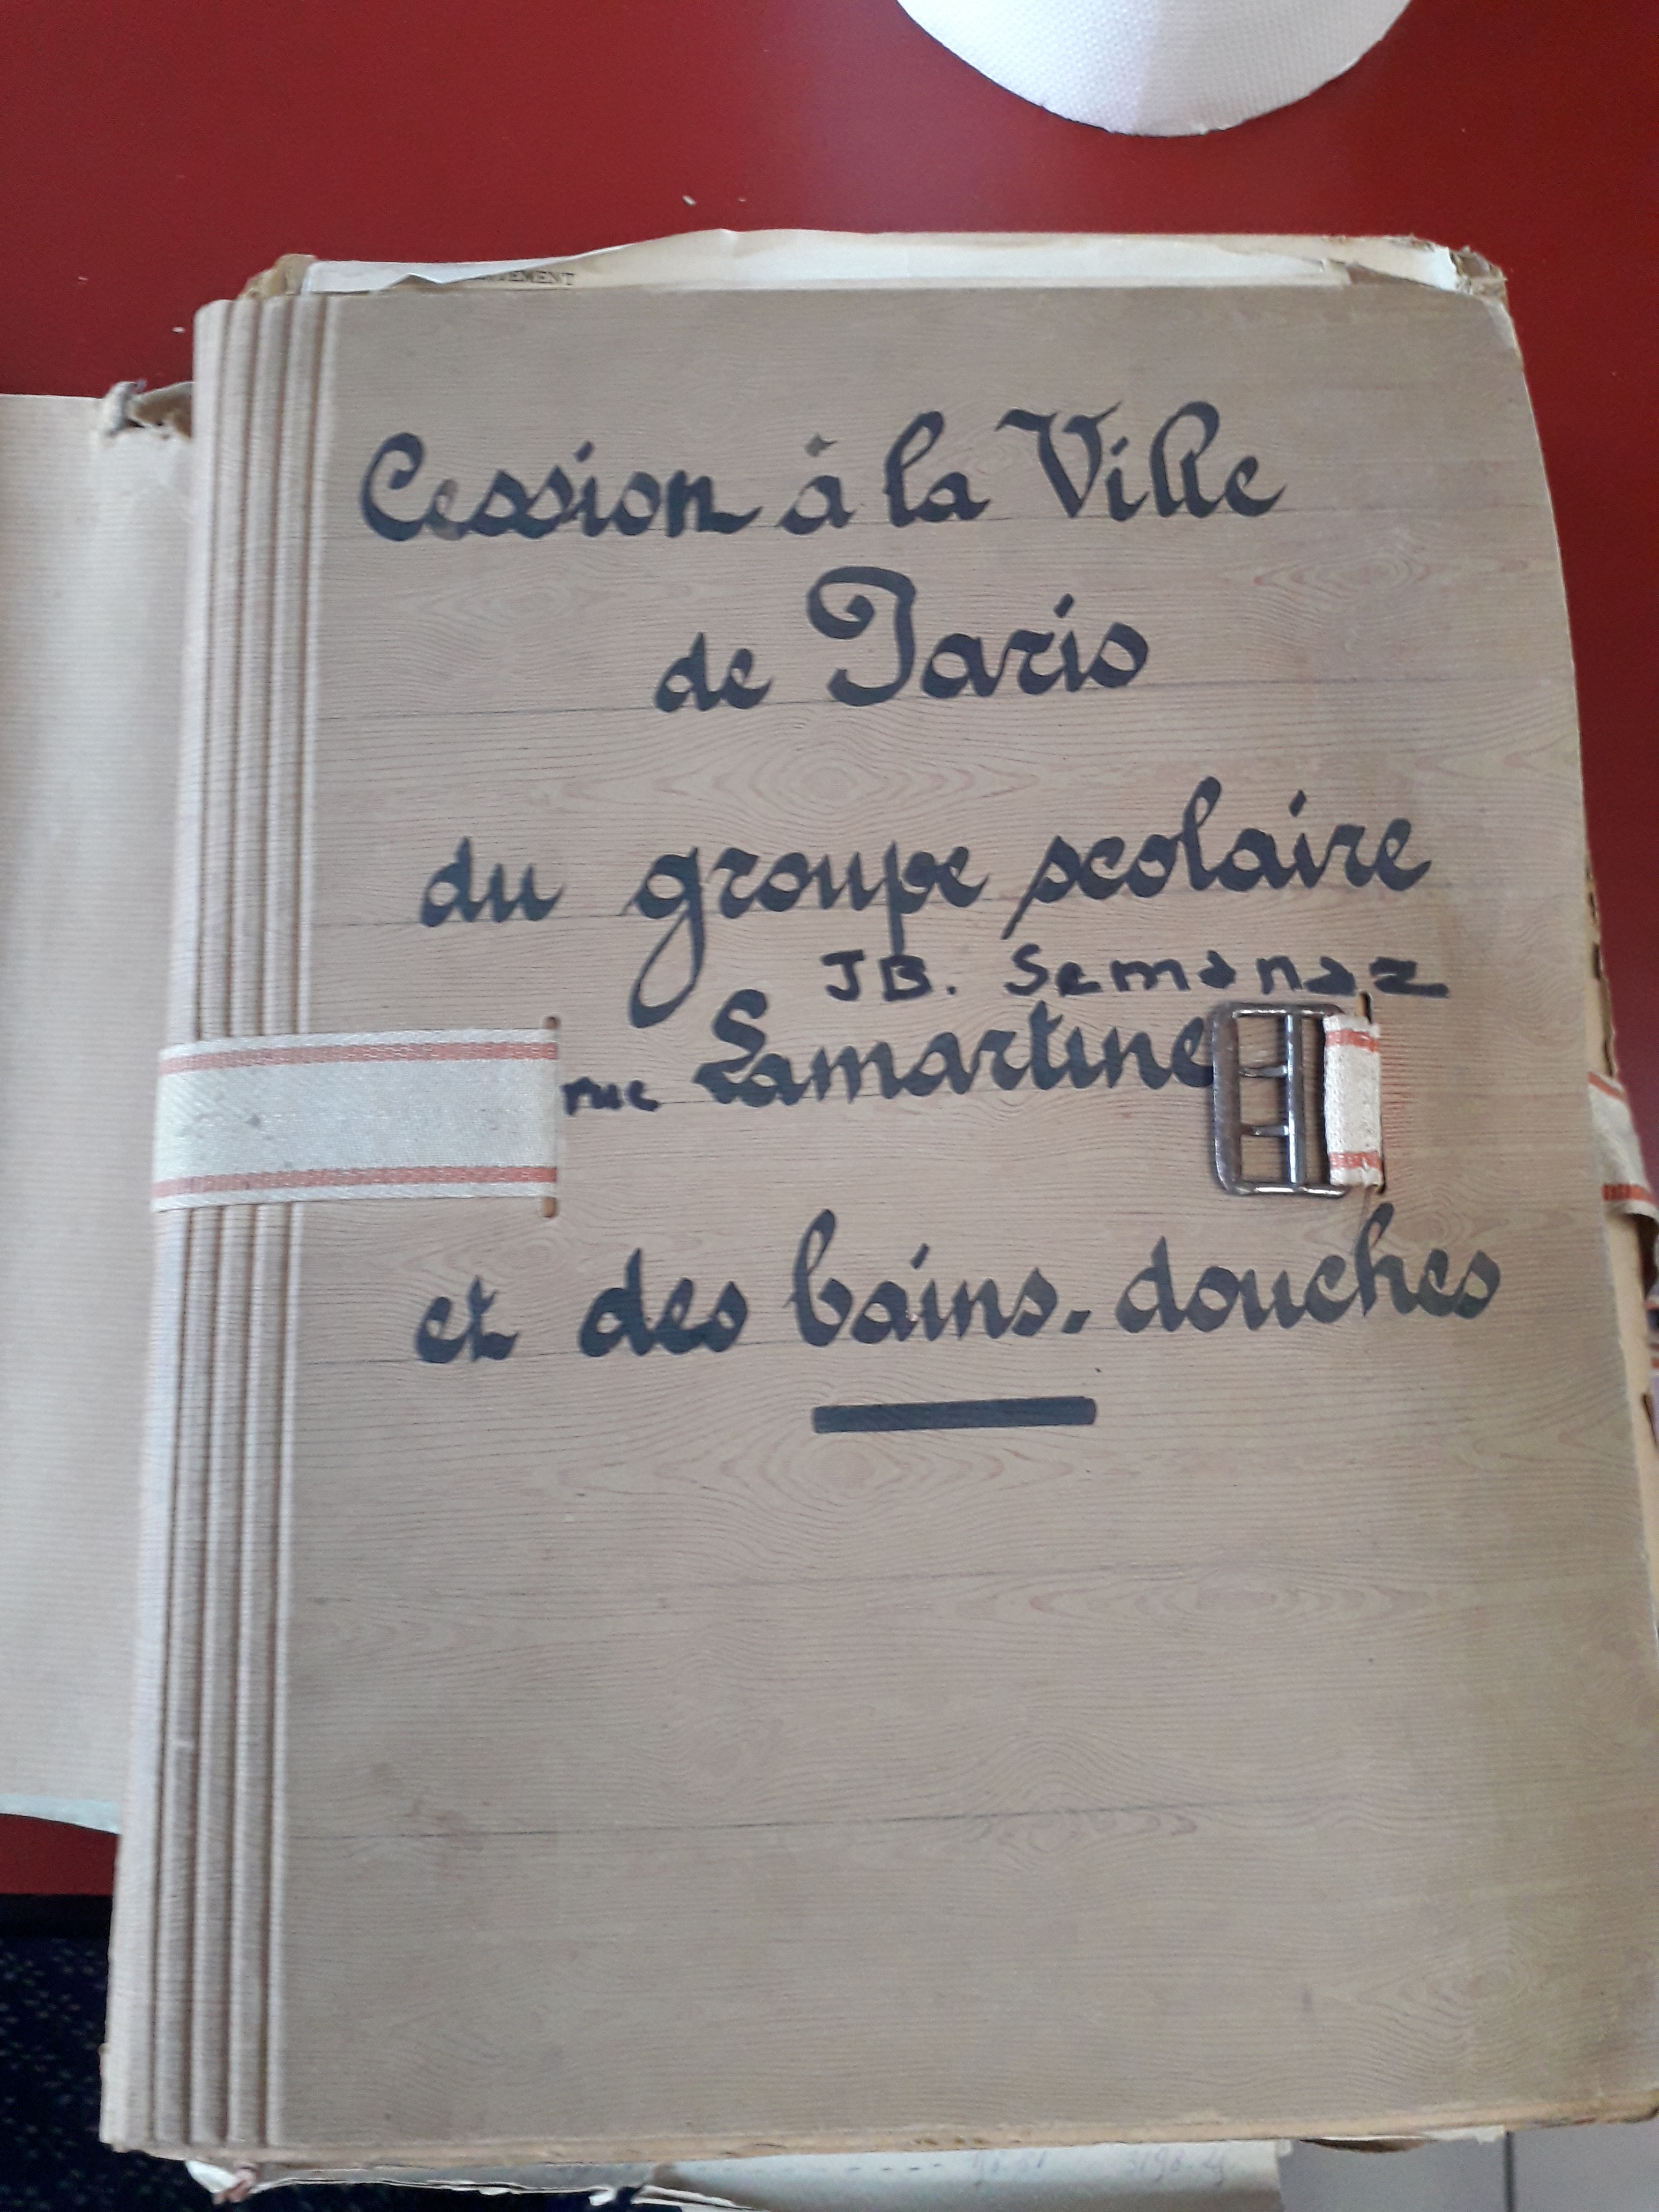 Cession à la Ville
de Paris
du groupe scolaire
JB. Semanaz
rue Lamartine
et des bains-douches